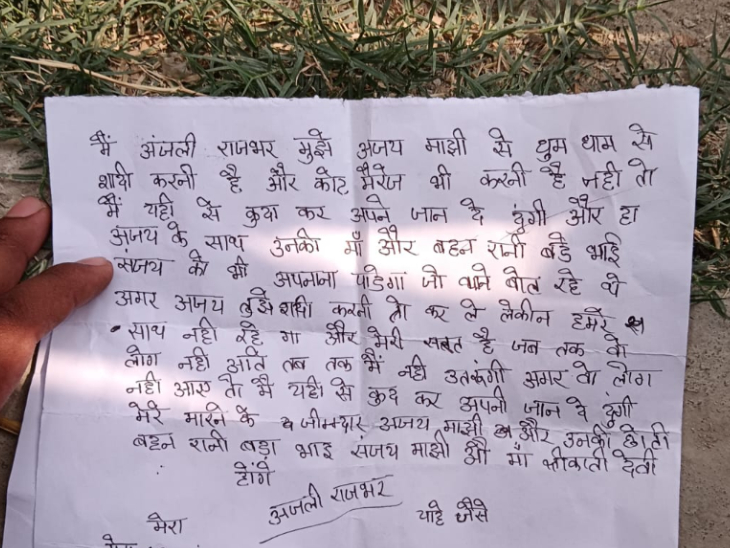 मैं अंजली राजभर मुझे अजय माझी से धुम धाम से
शादी करनी है और कोट मैरेज भी करनी है नही तो
मैं यही से कुदा कर अपने जान दे दुंगी और हा
अजय के साथ उनकी माँ और बहन रानी बडे भाई
संजय को भी अपनाना पडेगां जो वाने बोल रहे थे
अगर अजय तुझे शादी करनी तो कर ले लेकीन हमरे
साथ नही रहे गा और मेरी सरत है जब तक वो
लोग नही आते तब तक मैं नही उतकंगी अगर वो लोग
नही आए तो मै यही से कुद कर अपनी जान दे दुंगी
मेरे मारने के अजय माझी और उनकी छोटी
बहन रानी बड़ा भाइ संजय माझी औ माँ देवी
होंगे
अंजली राजभर
मेरा चाहे जैसे